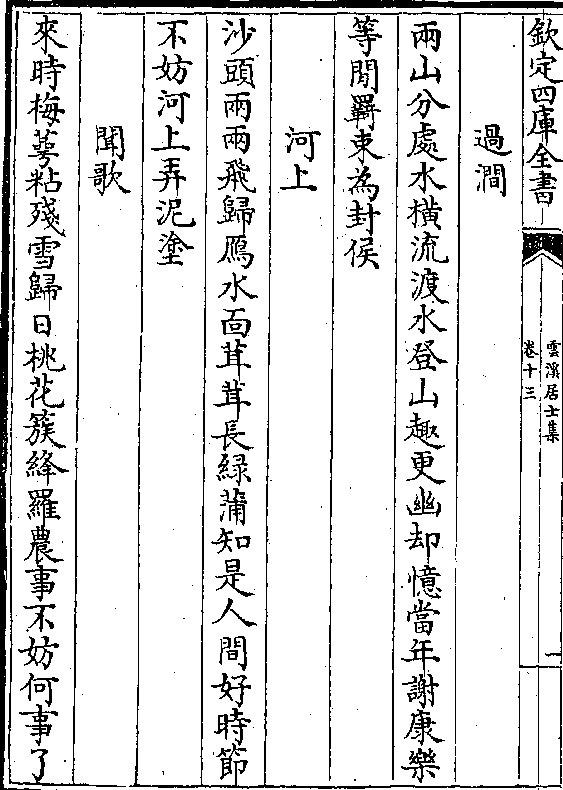 欽定四庫全書
雲溪居士集
卷十三
一
過澗
兩山分處水橫流渡水登山趣更幽却憶當年謝康樂
等閒羇束為封侯
河上
沙頭兩兩飛歸鴈水面茸茸長緑蒲知是人間好時節
不妨河上弄泥塗
聞歌
來時梅萼粘殘雪歸日桃花簇絳羅農事不妨何事了